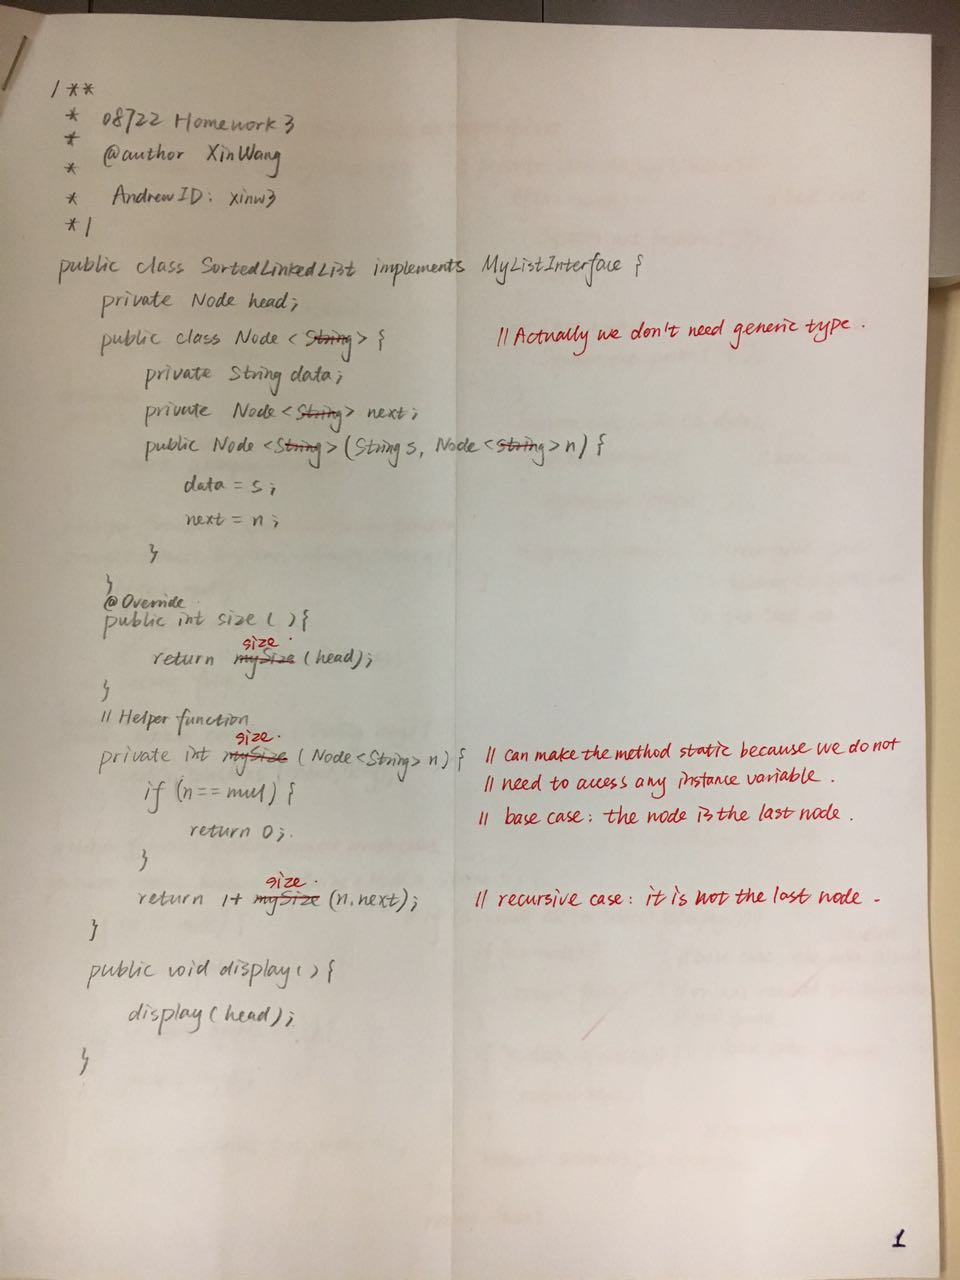 /**
* 08722 Homework 3
*
@author XinWang
*
* AndrewID: xinw3
*/
public class SortedLinkedList implements MyListInterface {
private Node head;
public class Node <String> { // Actually we don't need generic type.
private String data;
private Node <String> next;
public Node <String> (String s, Node <String> n) {
data = s;
next = n;
}
}
@Override
public int size ( ) {
size
return mySize (head);
}
// Helper function
size
private int mySize (Node <String> n) { // can make the method static because we do not
// need to access any instance variable.
if (n == null) {
// base case: the node is the last node.
return 0;
}
size
return 1+ mySize (n.next); // recursive case: it is not the last node.
}
public void display () {
display (head);
}
1